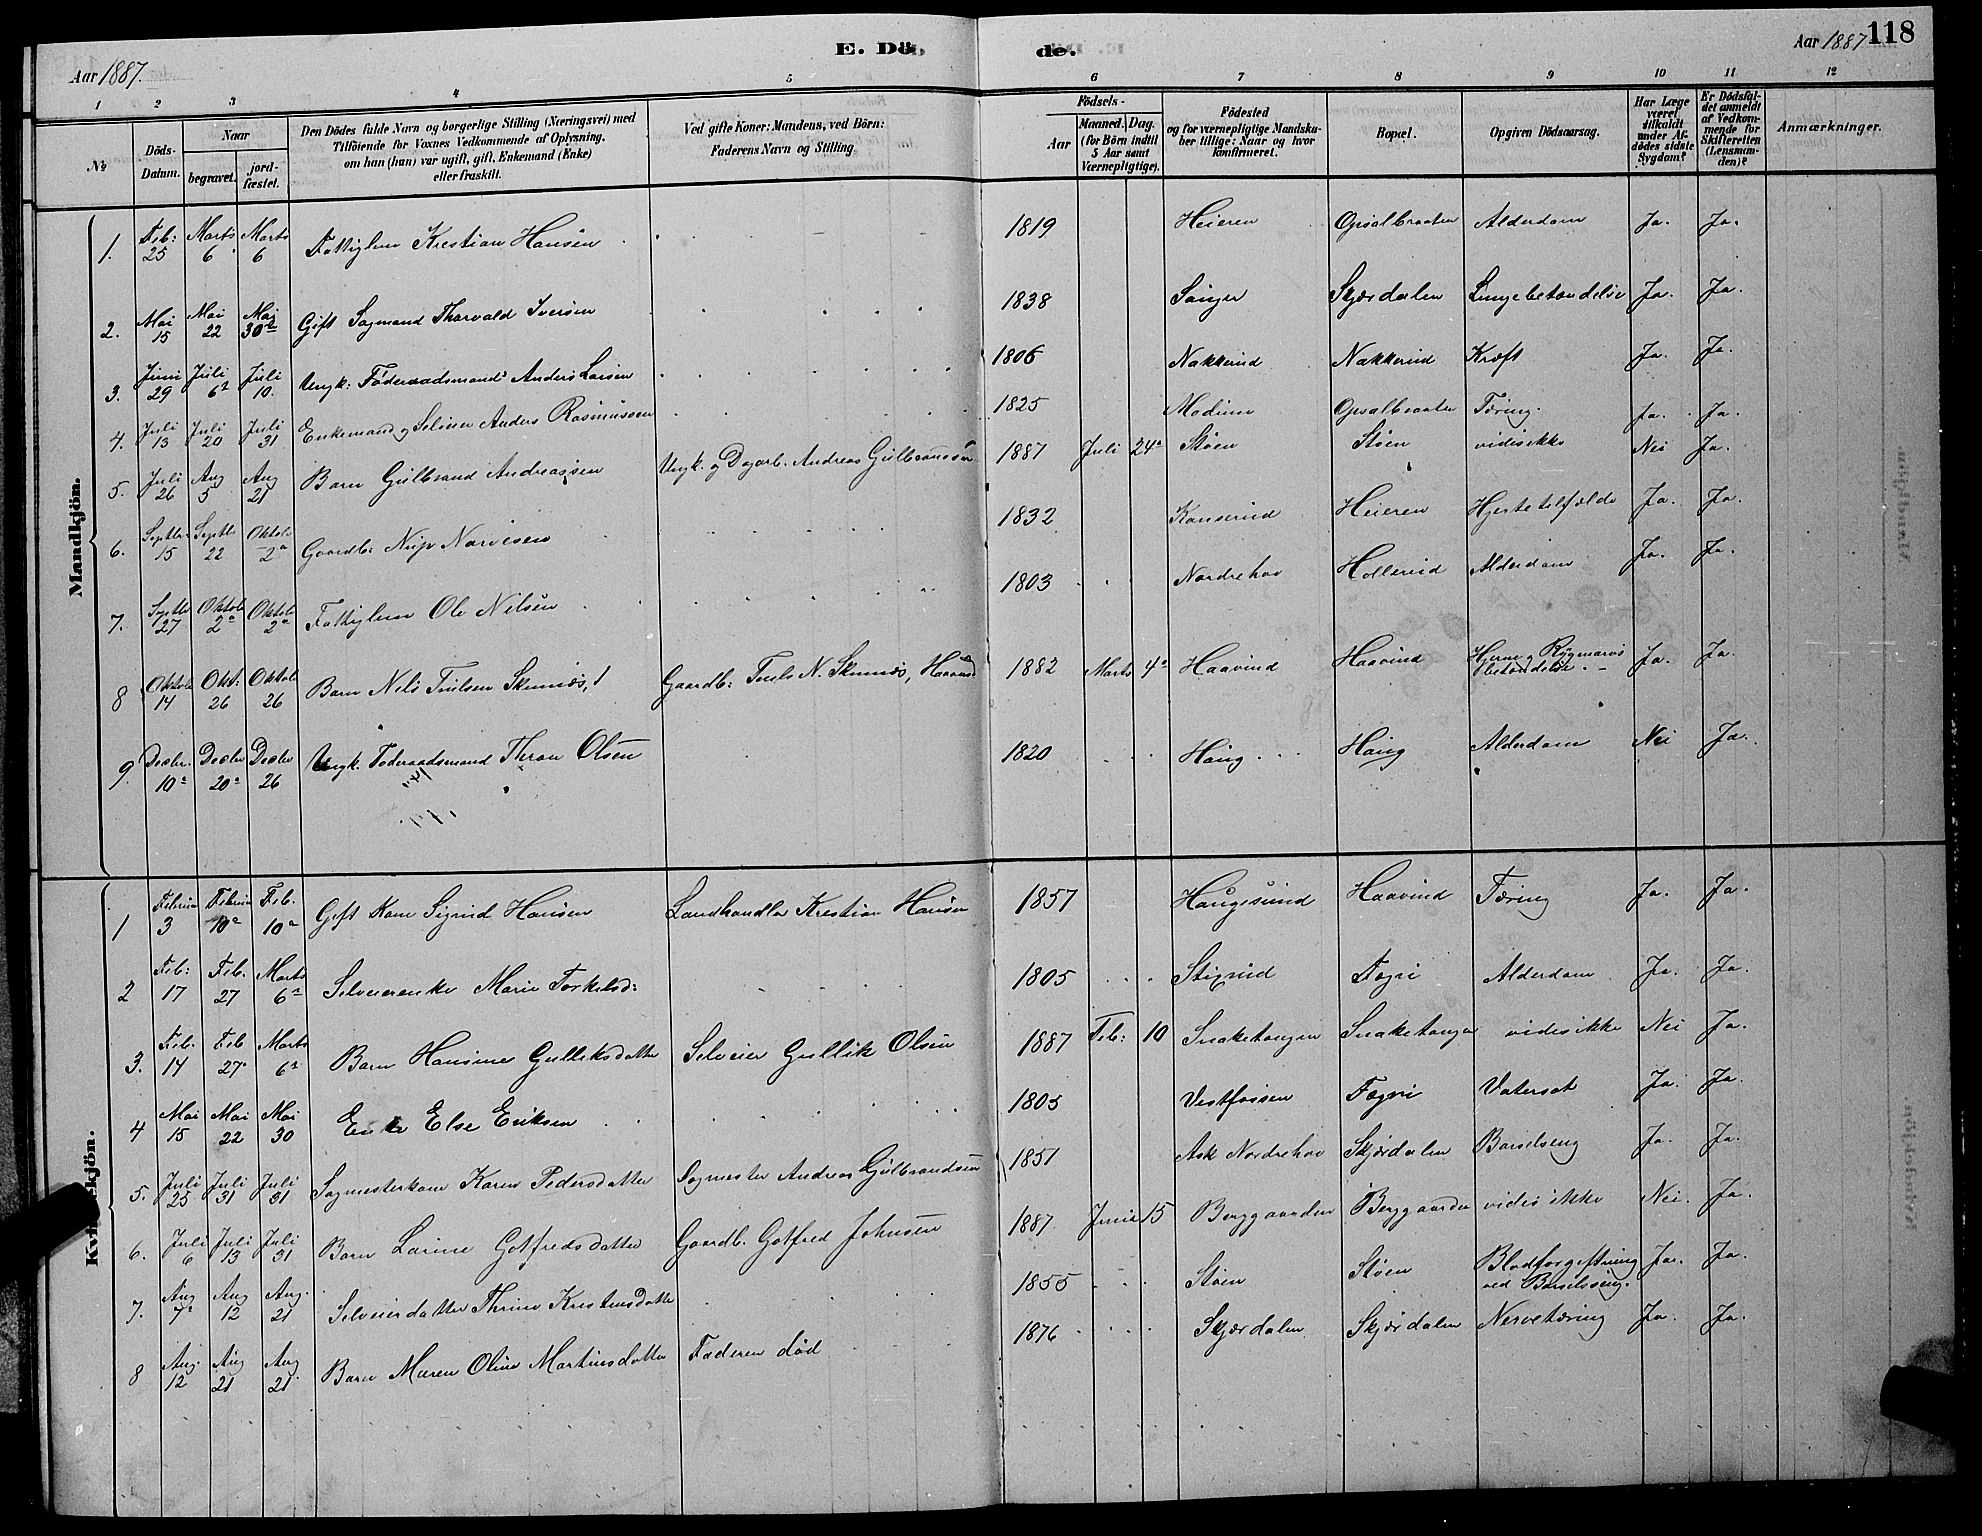 E. Dö de.
118
Aar 1887.
Aar 1887
1 2 3 4 5 6 7 8 9 10 11 12
№
Döds-Datum.
Naar
begravet.
jord-fæstet.
Den Dödes fulde Navn og borgerlige Stilling (Næringsvei) med
Tilföiende for Voxnes Vedkommende af Oplysning,
om han (hun) var ugift, gift, Enkemand (Enke)
eller fraskilt.
Ved gifte Koner: Mandens, ved Börn:
Faderens Navn og Stilling
Födsels-
Aar
Maaned. Dag.
(for Börn indtil
5 Aar samt
Værnepligtige).
Födested
og for værnepligtige Mandska-
ber tillige: Naar og hvor
konfirmeret.
Bopæl.
Opgiven Dödsaarsag.
Har Læge
været
tilkaldt
under Af-
dödes sidste
Sygdom?
Er Dödsfal-
det anmeldt
af Vedkom-
mende for
Skifteretten
(Lensman-
den)?
Anmærkninger.
Mandkjön.
1. Feb: 25 Marts 6 Marts 6 Fattiglem Kristian Hansen 1819 Heieren Opsalbraaten Alderdom Ja. Ja.
2. Mai 15 Mai 22 Mai 30 Gift Sagmand Thorvald Iversen 1838 Skjærdalen Lungebetændelse Ja. Ja.
3. Juni 29 Juli 6 Juli 10. Ungk: Föderaadsmand Anders Larsen 1806 Nakkerud Nakkerud Kræft Ja. Ja.
4. Juli 13 Juli 20 Juli 31 Enkemand og Selveier Anders Rasmussen 1825 Modum Opsalbraaten Tæring. Ja. Ja.
5. Juli 26 Aug 5 Aug 21 Barn Gulbrand Andreassen Ungk. og Dagarb. Andreas Gulbrandsen 1887 Juli 24 Støen Støen vides ikke Nei Ja.
6. Septbr 15 Septbr 22 Oktob 2 Gaardb: Narvesen 1832 Heieren Hjertetilfælde Ja. Ja.
7. Septbr 27 Oktob 2 Oktob 2 Fattiglem Ole Nilsen 1803 Nordrehov Hollerud Alderdom Ja. Ja.
8 Oktob 14 Okt: 26 Oktob 26 Barn Nils Truls N. Gaardb: Truls N. Skinnæs, Haavind 1882 Marts 4 Haavind Haavind Hjerne og Rygmarvs betændelse. Ja. Ja.
9. Decbr. 10 Decbr 20 Decbr 26 Ungk. Föderaadsmand Thron Olsen 1820 Haug Haug Alderdom Nei Ja.
Kvindekjön.
1 Februar 3 Februar 10 Feb. 10 Gift Kone Sigrid Hansen Landhandler Kristian Hansen 1857 Haugesund Haavind Tæring Ja. Ja.
2 Feb: 17 Feb. 27 Marts 6 Selveierenke Marie Torkelsd: 1805 Stixrud Fagri Alderdom Ja. Ja.
3. Feb. 14 Feb 27 Marts 6 Barn Hansine Gulliksdatter Selveier Gullik Olsen 1887 Feb: 10 Snaketangen Snaketangen vides ikke Nei Ja.
4 Mai 15 Mai 22 Mai 30 Enke Else Eriksen 1805 Vestfossen Fagri Vatersot Ja. Ja.
5. Juli 25 Juli 31 Juli 31 Sagmesterkone Karen Pedersdatter Sagmester Andreas Gulbrandsen 1851 Ask Nordrehov Skjærdalen Barselseng Ja. Ja.
6. Juli 6 Juli 13 Juli 31 Barn Larine Gotfredsdatter Gaardb. Gotfred Johnsen 1887. Juni 15 Berggaarden Berggaarden vides ikke Nei. Ja.
7. Aug 7 Aug 12 Aug. 21 Selveierdatter Thrine Kristensdatter 1855 Støen Støen Blodforgiftning ved Barselseng. Ja. Ja.
8 Aug. 12 Aug 21 Aug 21 Barn Maren Oline Martinsdatter Faderen död 1876 Skjærdalen Skjærdalen Nervetæring Ja. Ja.